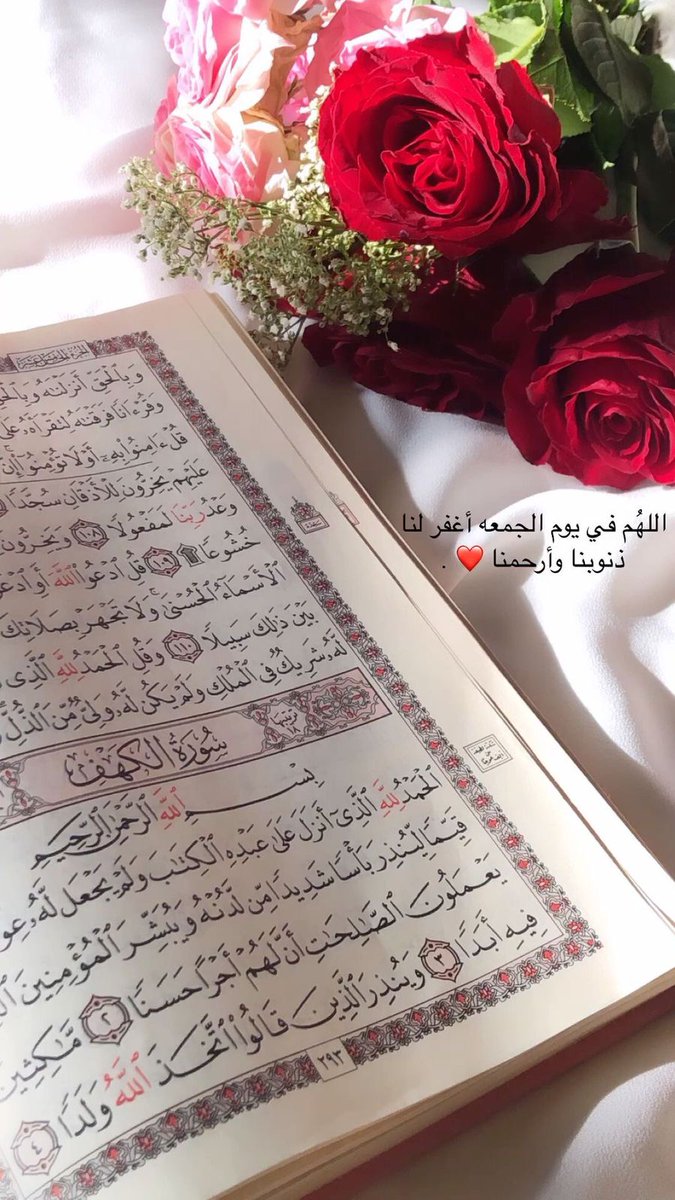 وَبِٱلْحَقِّ أَنزَلْنَٰهُ وَبِٱلْحَقِّ
وَقُرْءَانًا فَرَقْنَٰهُ لِتَقْرَأَهُۥ عَلَى
قُلْ ءَامِنُوا۟ بِهِۦٓ أَوْ لَا تُؤْمِنُوٓا۟ إِنَّ
عَلَيْهِمْ يَخِرُّونَ لِلْأَذْقَانِ سُجَّدًا
وَعْدُ رَبِّنَا لَمَفْعُولًا ١٠٨ وَيَخِرُّونَ
خُشُوعًا ۩ ١٠٩ قُلِ ٱدْعُوا۟ ٱللَّهَ أَوِ ٱدْعُوا۟
ٱلْأَسْمَآءُ ٱلْحُسْنَىٰ ۚ وَلَا تَجْهَرْ بِصَلَاتِكَ
بَيْنَ ذَٰلِكَ سَبِيلًا ١١٠ وَقُلِ ٱلْحَمْدُ لِلَّهِ ٱلَّذِى
لَّهُۥ شَرِيكٌ فِى ٱلْمُلْكِ وَلَمْ يَكُن لَّهُۥ وَلِىٌّ مِّنَ ٱلذُّلِّ
سُورَةُ ٱلْكَهْفِ
بِسْمِ ٱللَّهِ ٱلرَّحْمَٰنِ ٱلرَّحِيمِ
ٱلْحَمْدُ لِلَّهِ ٱلَّذِىٓ أَنزَلَ عَلَىٰ عَبْدِهِ ٱلْكِتَٰبَ وَلَمْ يَجْعَل لَّهُۥ عِوَجَا
قَيِّمًا لِّيُنذِرَ بَأْسًا شَدِيدًا مِّن لَّدُنْهُ وَيُبَشِّرَ ٱلْمُؤْمِنِينَ
يَعْمَلُونَ ٱلصَّٰلِحَٰتِ أَنَّ لَهُمْ أَجْرًا حَسَنًا ٢ مَّٰكِثِينَ
فِيهِ أَبَدًا ٣ وَيُنذِرَ ٱلَّذِينَ قَالُوا۟ ٱتَّخَذَ ٱللَّهُ وَلَدًا ٤
٢٩٣
اللهُم في يوم الجمعه أغفر لنا
ذنوبنا وأرحمنا ❤️ .